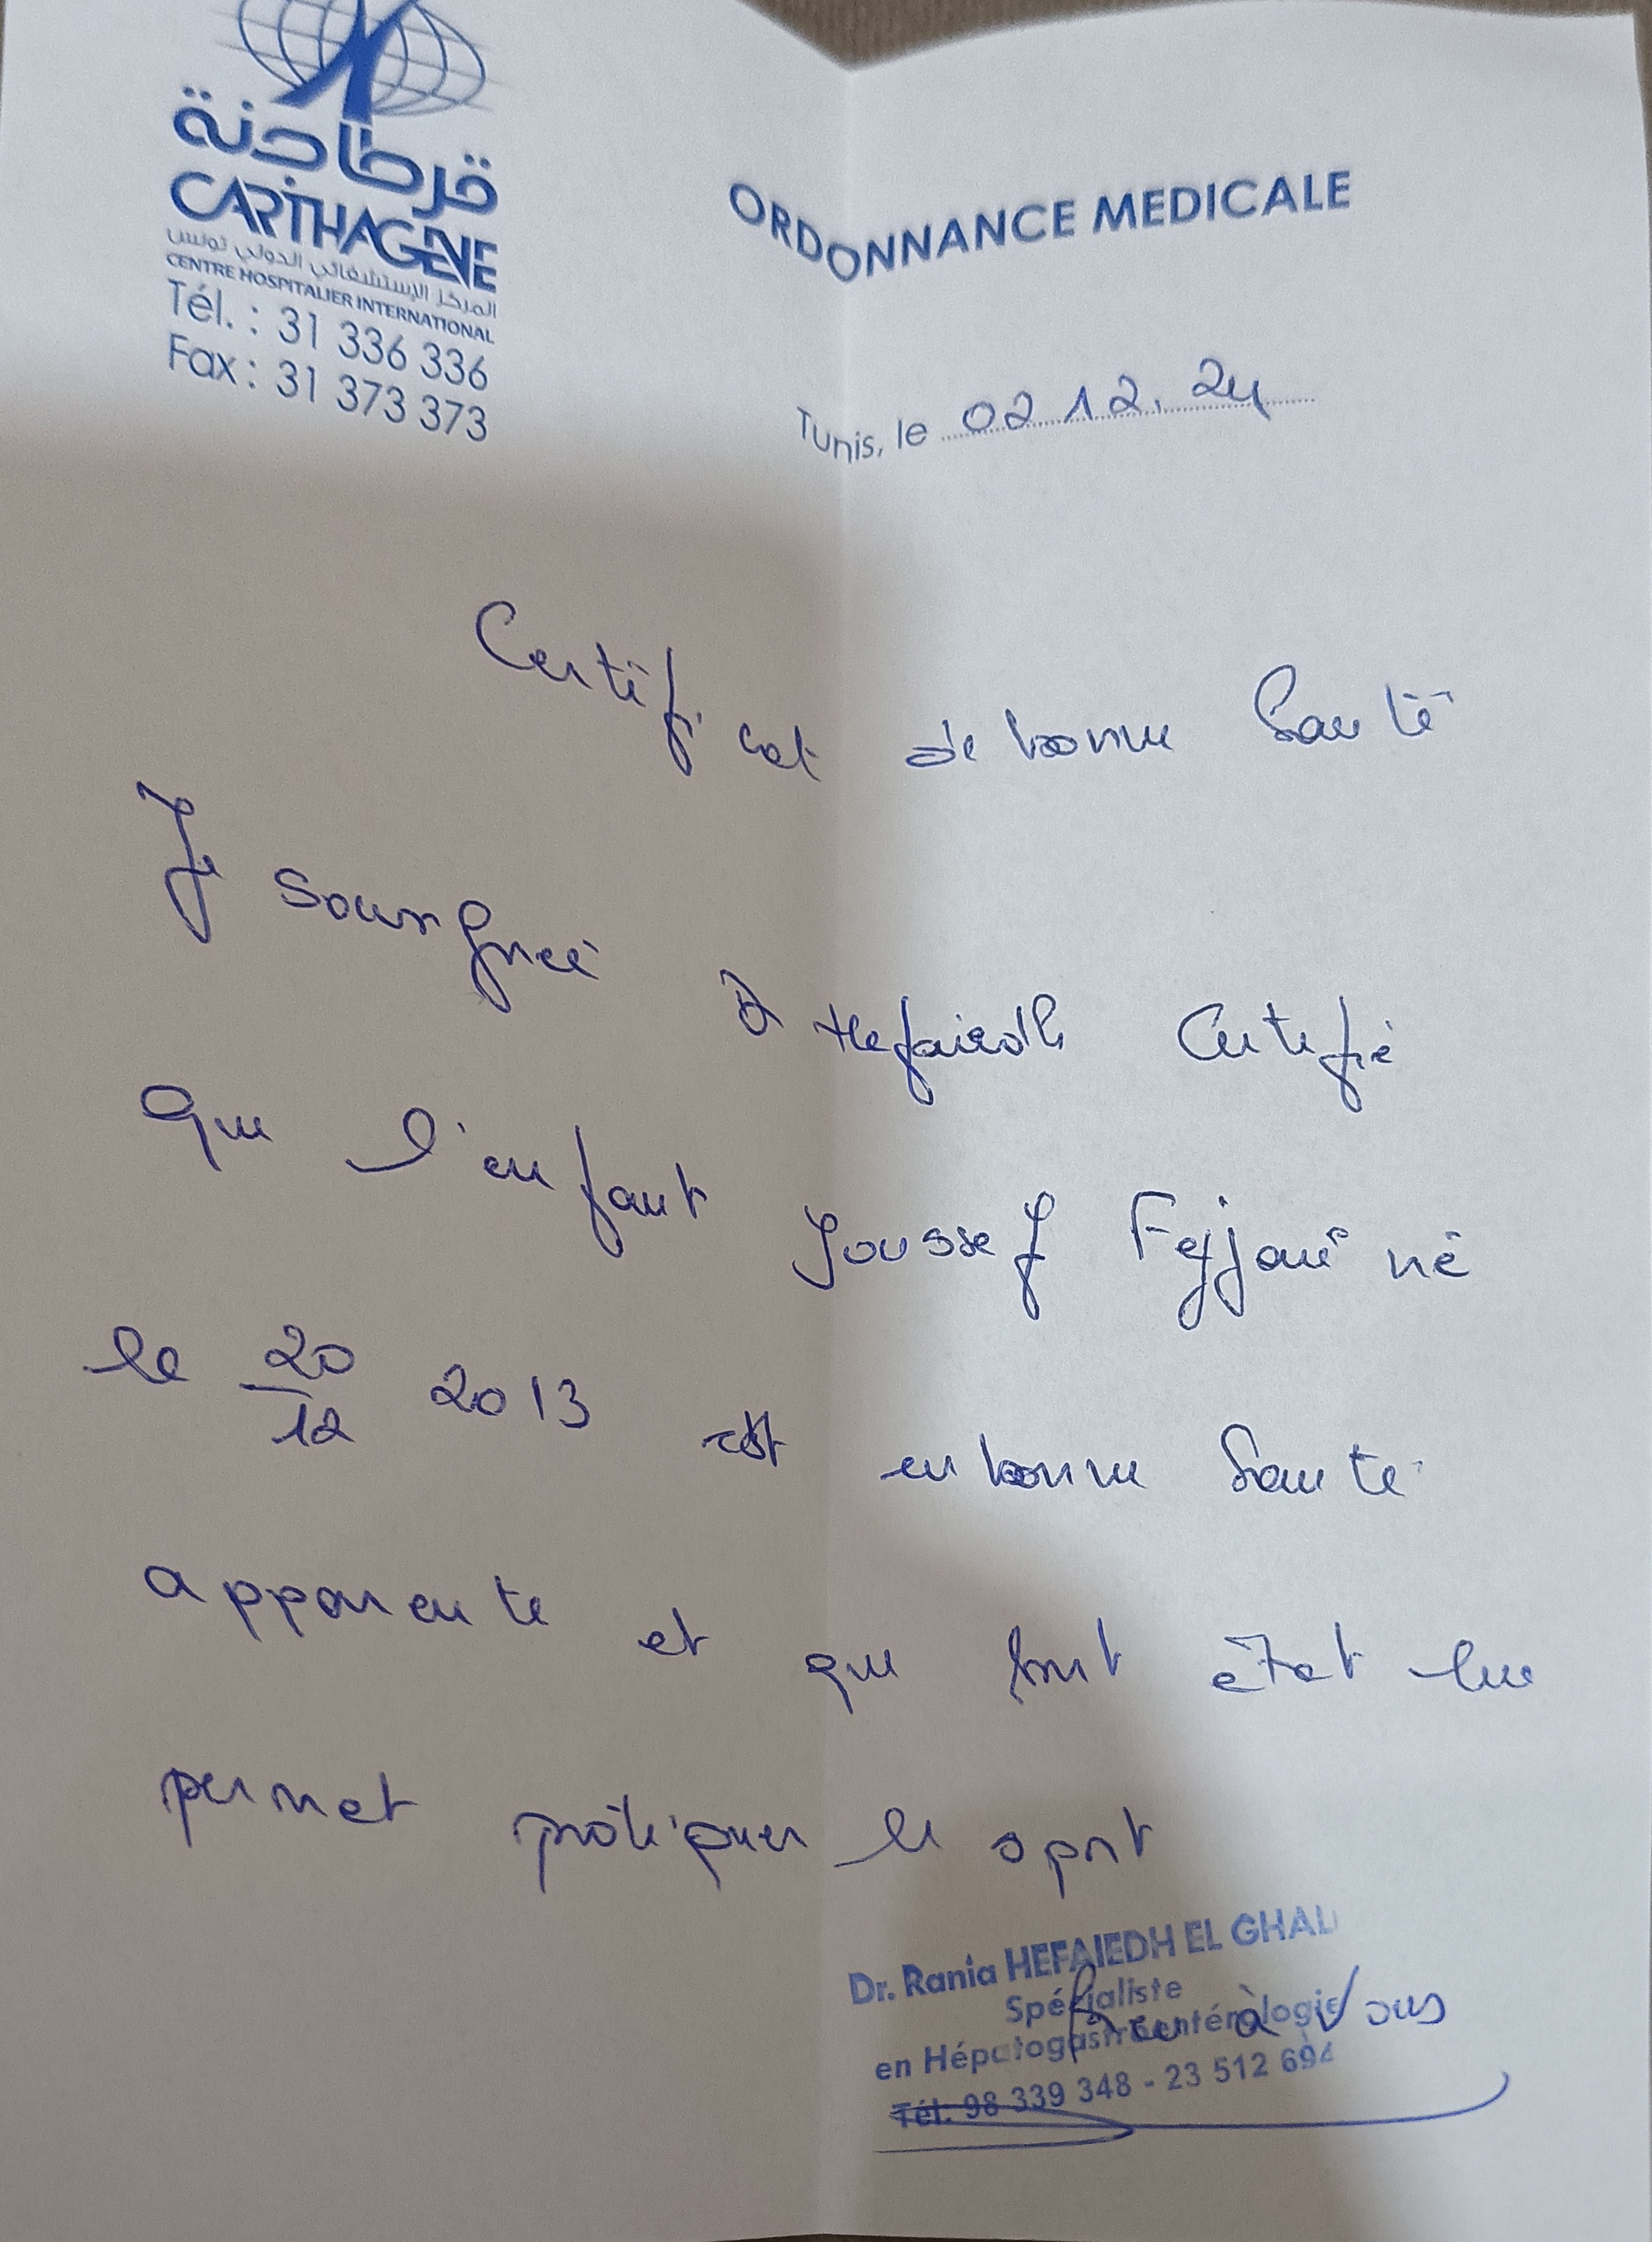 قرطاجنة
CARTHAGENE
المركز الإستشفائي الدولي تونس
CENTRE HOSPITALIER INTERNATIONAL
Tél. : 31 336 336
Fax : 31 373 373
ORDONNANCE MEDICALE
Tunis, le 02.12.24
Certificat de bonne Santé
Je soussignée Dr Hefaiedh Certifie
que l'enfant Youssef Fejjari né
le 20/12 2013 est en bonne Santé
apparente et que tout état lui
permet pratiquer le sport
Dr. Rania HEFAIEDH EL GHALI
Spécialiste
en Hépatogastroentérologie
Tél: 98 339 348 - 23 512 694
Bien à Vous